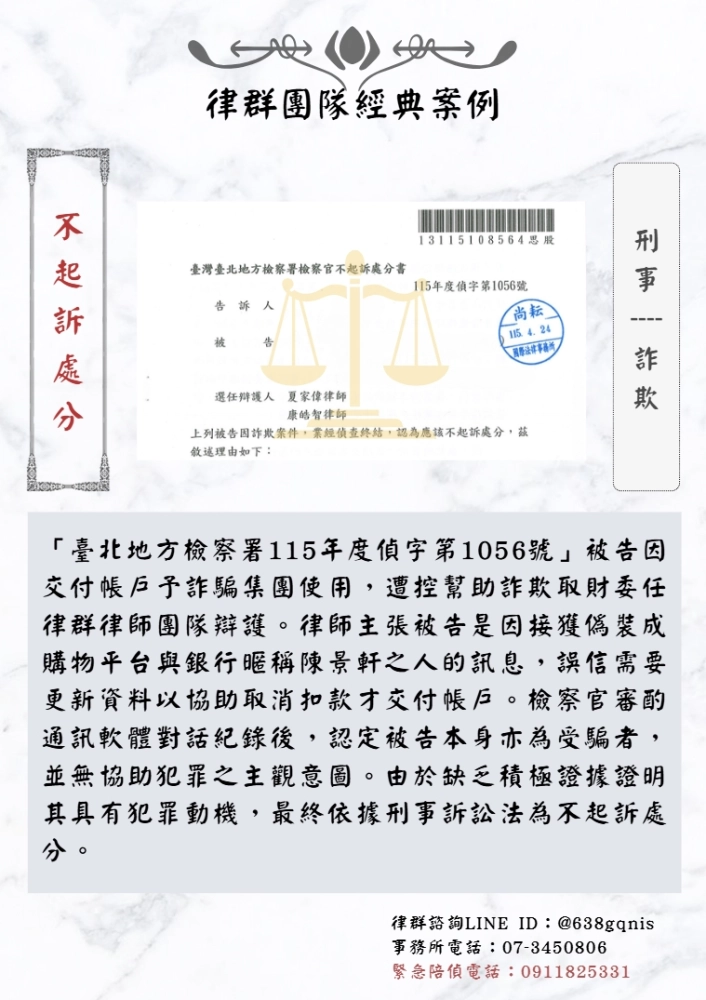 律群團隊經典案例
不起訴處分
刑事----詐欺
13115108564思股
臺灣臺北地方檢察署檢察官不起訴處分書
115年度偵字第1056號
告訴人
被告
尚耘
115. 4. 24
國際法律事務所
選任辯護人 夏家偉律師
康皓智律師
上列被告因詐欺案件,業經偵查終結,認為應該不起訴處分,茲
敘述理由如下:
「臺北地方檢察署115年度偵字第1056號」被告因
交付帳戶予詐騙集團使用,遭控幫助詐欺取財委任
律群律師團隊辯護。律師主張被告是因接獲偽裝成
購物平台與銀行暱稱陳景軒之人的訊息,誤信需要
更新資料以協助取消扣款才交付帳戶。檢察官審酌
通訊軟體對話紀錄後,認定被告本身亦為受騙者,
並無協助犯罪之主觀意圖。由於缺乏積極證據證明
其具有犯罪動機,最終依據刑事訴訟法為不起訴處
分。
律群諮詢LINE ID:@638gqnis
事務所電話:07-3450806
緊急陪偵電話:0911825331